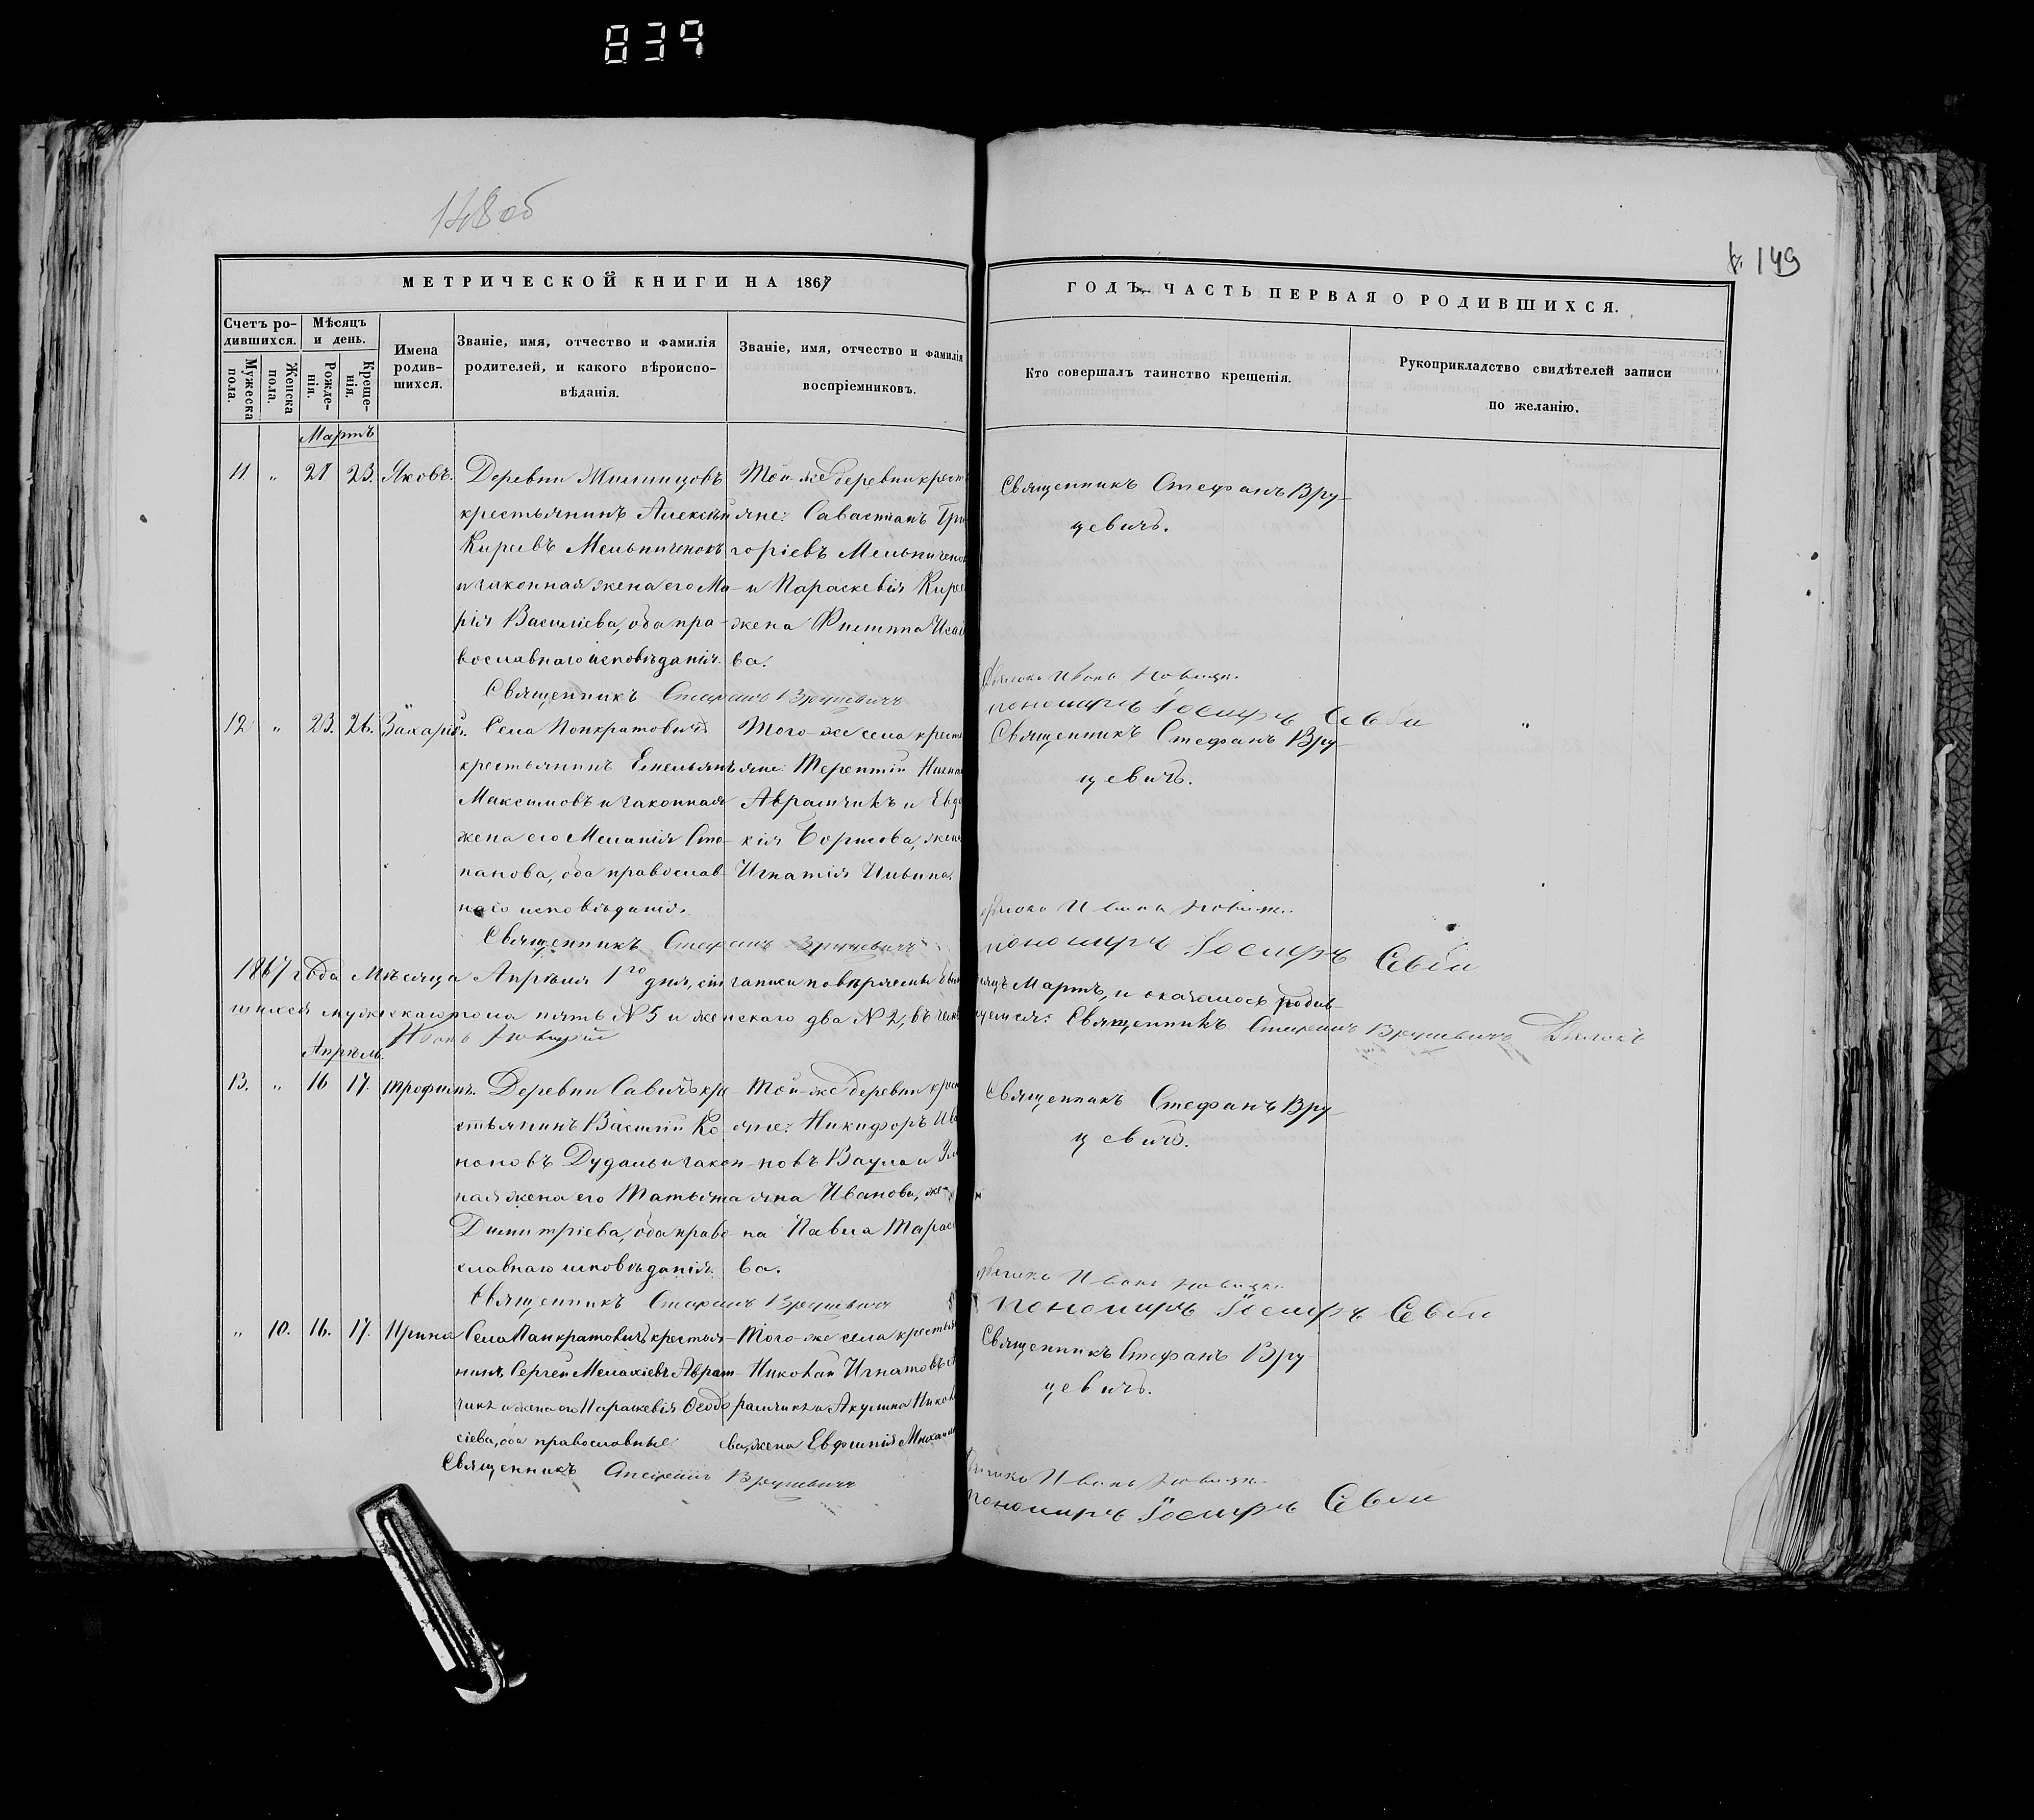 839
148 об
149
МЕТРИЧЕСКОЙ КНИГИ НА 1867
ГОДЪ, ЧАСТЬ ПЕРВАЯ О РОДИВШИХСЯ.
Счетъ ро-
дившихся.
Мужеска
пола.
Женска
пола.
Мѣсяцъ
и день.
Рожде-
нія.
Креще-
нія.
Имена
родив-
шихся.
Званіе, имя, отчество и фамилія
родителей, и какого вѣроиспо-
вѣданія.
Званіе, имя, отчество и фамилія
воспріемниковъ.
Кто совершалъ таинство крещенія.
Рукоприкладство свидѣтелей записи
по желанію.
Мартъ
11 " 21 23. Яковъ.
Деревни
крестьянинъ Алексѣй
Киреевъ Мельниченокъ
и законная жена его Ма-
рія Васильева, оба пра-
вославнаго исповѣданія.
Священникъ Стефанъ Вруцевичъ
Той-же деревни крест
яне: Савастіанъ Гри
горіевъ Мельничено
и Параскевія Кирее
жена Филиппа Исае
ва.
Священникъ Стефанъ Вру-
цевичъ.
Иванъ
пономарь Іосифъ
12 " 23. 26. Захарій.
Села Понкратовичъ
крестьянинъ Емельянъ
Максимовъ и законная
жена его Меланія Сте-
панова, оба православ-
наго исповѣданія.
Священникъ Стефанъ Вруцевичъ
Того-же села кресть
яне: Терентій
Аврамчикъ и Евдо
кія Борисова, жена
Игнатія Ильина.
Священникъ Стефанъ Вру-
цевичъ.
"
Иванъ
пономарь Іосифъ
1867 года Мѣсяца Апрѣля 1го дня, сіи записи повѣряемы были
мѣсяцъ Мартъ, и оказалось родив-
шихся мужескаго пола пять № 5 и женскаго два № 2, въ чемъ
Священникъ Стефанъ Вруцевичъ Дьячокъ
Иванъ
Апрѣль.
13. " 16 17. Трофимъ.
Деревни Савичъ кре-
стьянинъ Василій Ко-
ноновъ Дудаль и закон-
ная жена его Татьяна
Димитріева, оба право
славнаго исповѣданія.
Священникъ Стефанъ Вруцевичъ
Той-же деревни крест
яне: Никифоръ Ива
новъ Ваула и Ул
яна Иванова, же-
на Павла Тарасе
ва.
Священникъ Стефанъ Вру-
цевичъ.
Иванъ
пономарь Іосифъ
" 10. 16. 17. Ирина
Села Панкратовичъ крестья-
нинъ Сергей Мелахіевъ Аврам-
чикъ и жена его Параскевія Ѳеодо
сіева, оба православные.
Священникъ Стефанъ Вруцевичъ
Того-же села крестья
Николай Игнатовъ А
врамчикъ и Акулина Никола
ева, жена Евфимія Михаил
Священникъ Стефанъ Вру
цевичъ.
Иванъ
пономарь Іосифъ